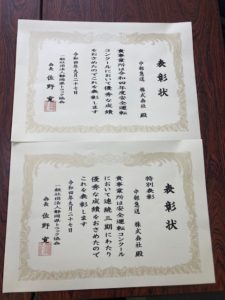 表彰状
中部急送 株式会社 殿
貴事業所は令和四年度安全運転
コンクールにおいて優秀な成績
をおさめたのでこれを表彰します
令和四年九月二十七日
一般社団法人静岡県トラック協会
会長 佐野 寛
表彰状
特別表彰
中部急送 株式会社 殿
貴事業所は安全運転コンクール
において連続三期にわたり
優秀な成績をおさめたので
これを表彰します
令和四年九月二十七日
一般社団法人静岡県トラック協会
会長 佐野 寛